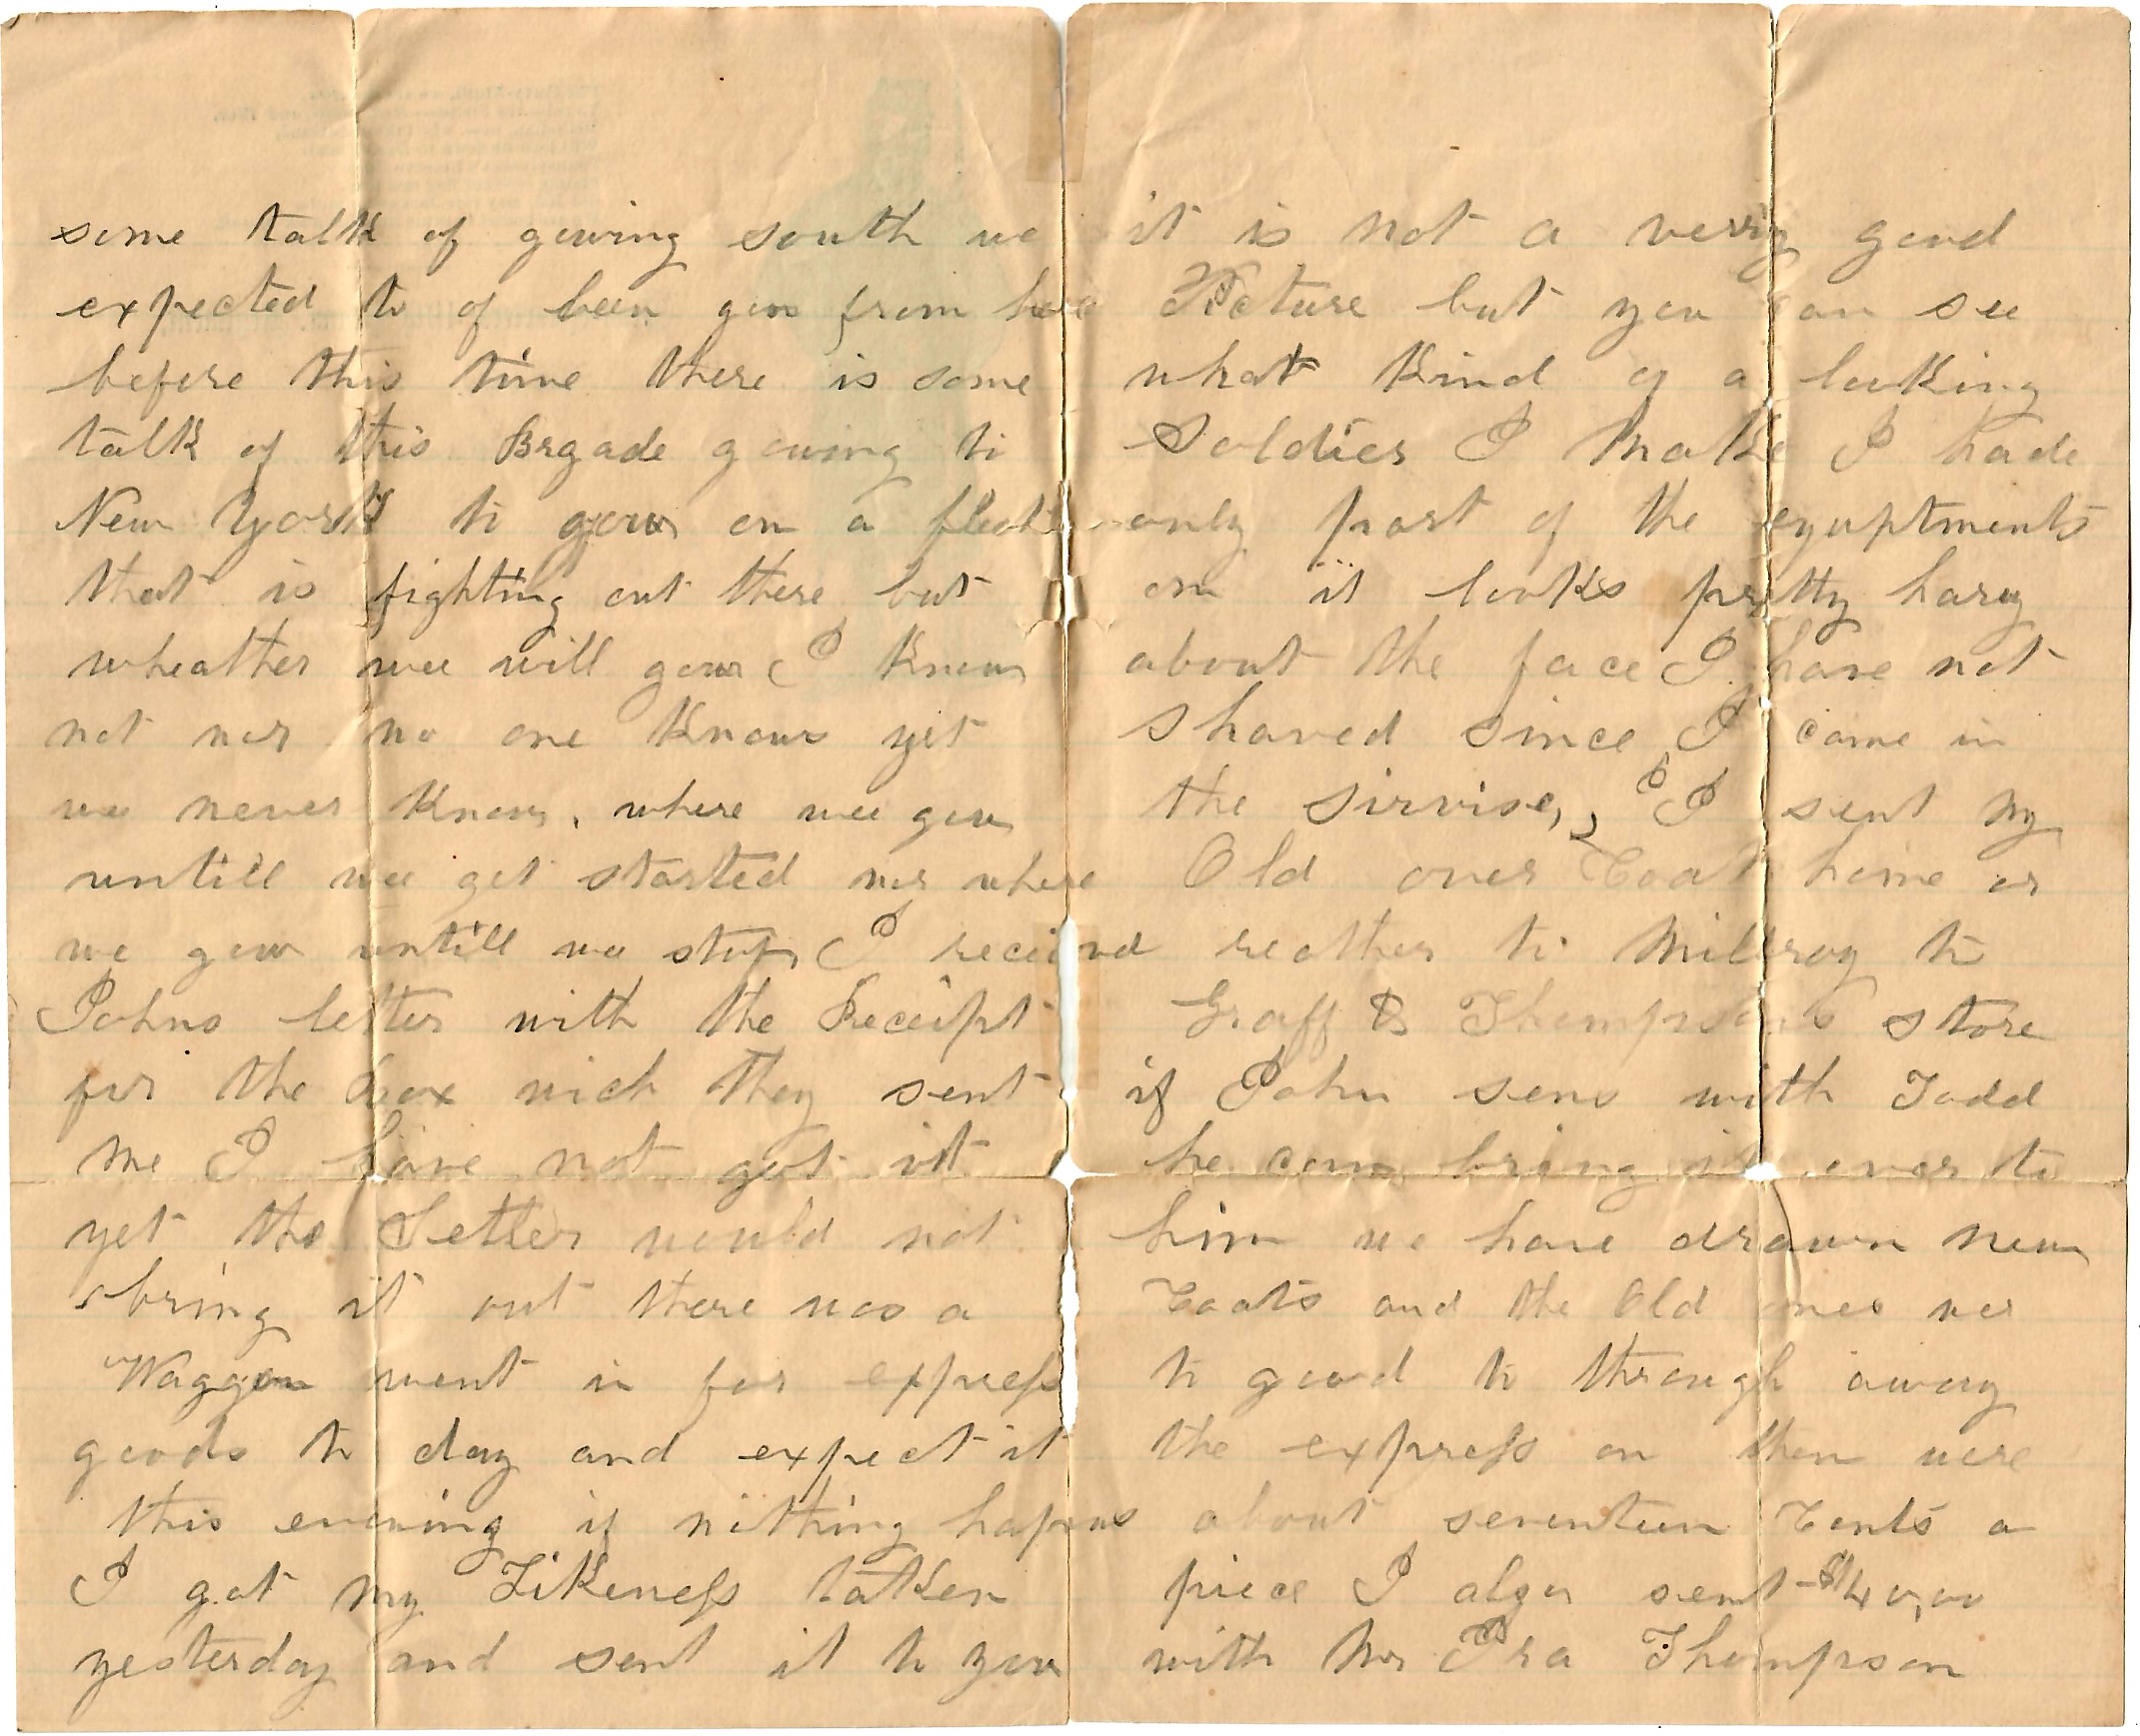 some talk of gowing south we
expected to of been gon from here
before this time there is some
talk of this Brgade gowing to
New York to gow on a fleat
that is fighting out there but
wheather wee will gow I know
not nor no one knows yet
we never know, where wee gow
untill wee get started nor where
we gow untill we stop, I received
Johns letter with the Receipt
for the box wich they sent
me I have not got it
yet the Setler would not
bring it out there was a
Waggon went in for express
goods to day and expect it
this evening if nothing hapens
I got my Likeness taken
yesterday and sent it to you
it is not a verry good
Picture but you can see
what kind of a looking
Soldier I make I hade
only part of the equptments
on it looks pretty hary
about the face I have not
shaved since I came in
the sirvise, I sent my
Old over Coat home or
reather to Millroy to
Graff & Thompsons store
if John sens with Todd
he can bring it over to
him we have drawn new
Coats and the Old ones wer
to good to through away
the express on them were
about seventeen Cents a
piece I also sent $40,00
with Mr Ira Thompson